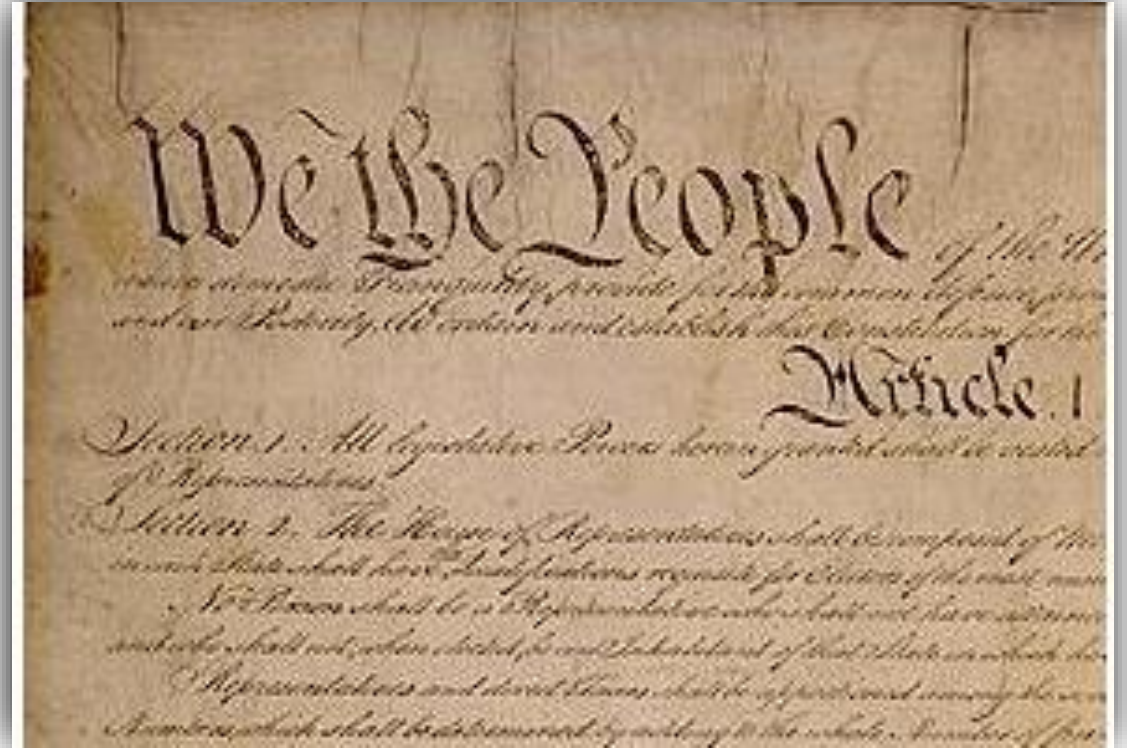 We the People of the Un
insure domestic Tranquility, provide for the common defence, pro
and our Posterity, do ordain and establish this Constitution for the
Article. I
Section. 1. All legislative Powers herein granted shall be vested
of Representatives.
Section. 2. The House of Representatives shall be composed of Mem
in each State shall have Qualifications requisite for Electors of the most nume
No Person shall be a Representative who shall not have attained
and who shall not, when elected, be an Inhabitant of that State in which he
Representatives and direct Taxes shall be apportioned among the
Numbers, which shall be determined by adding to the whole Number of free